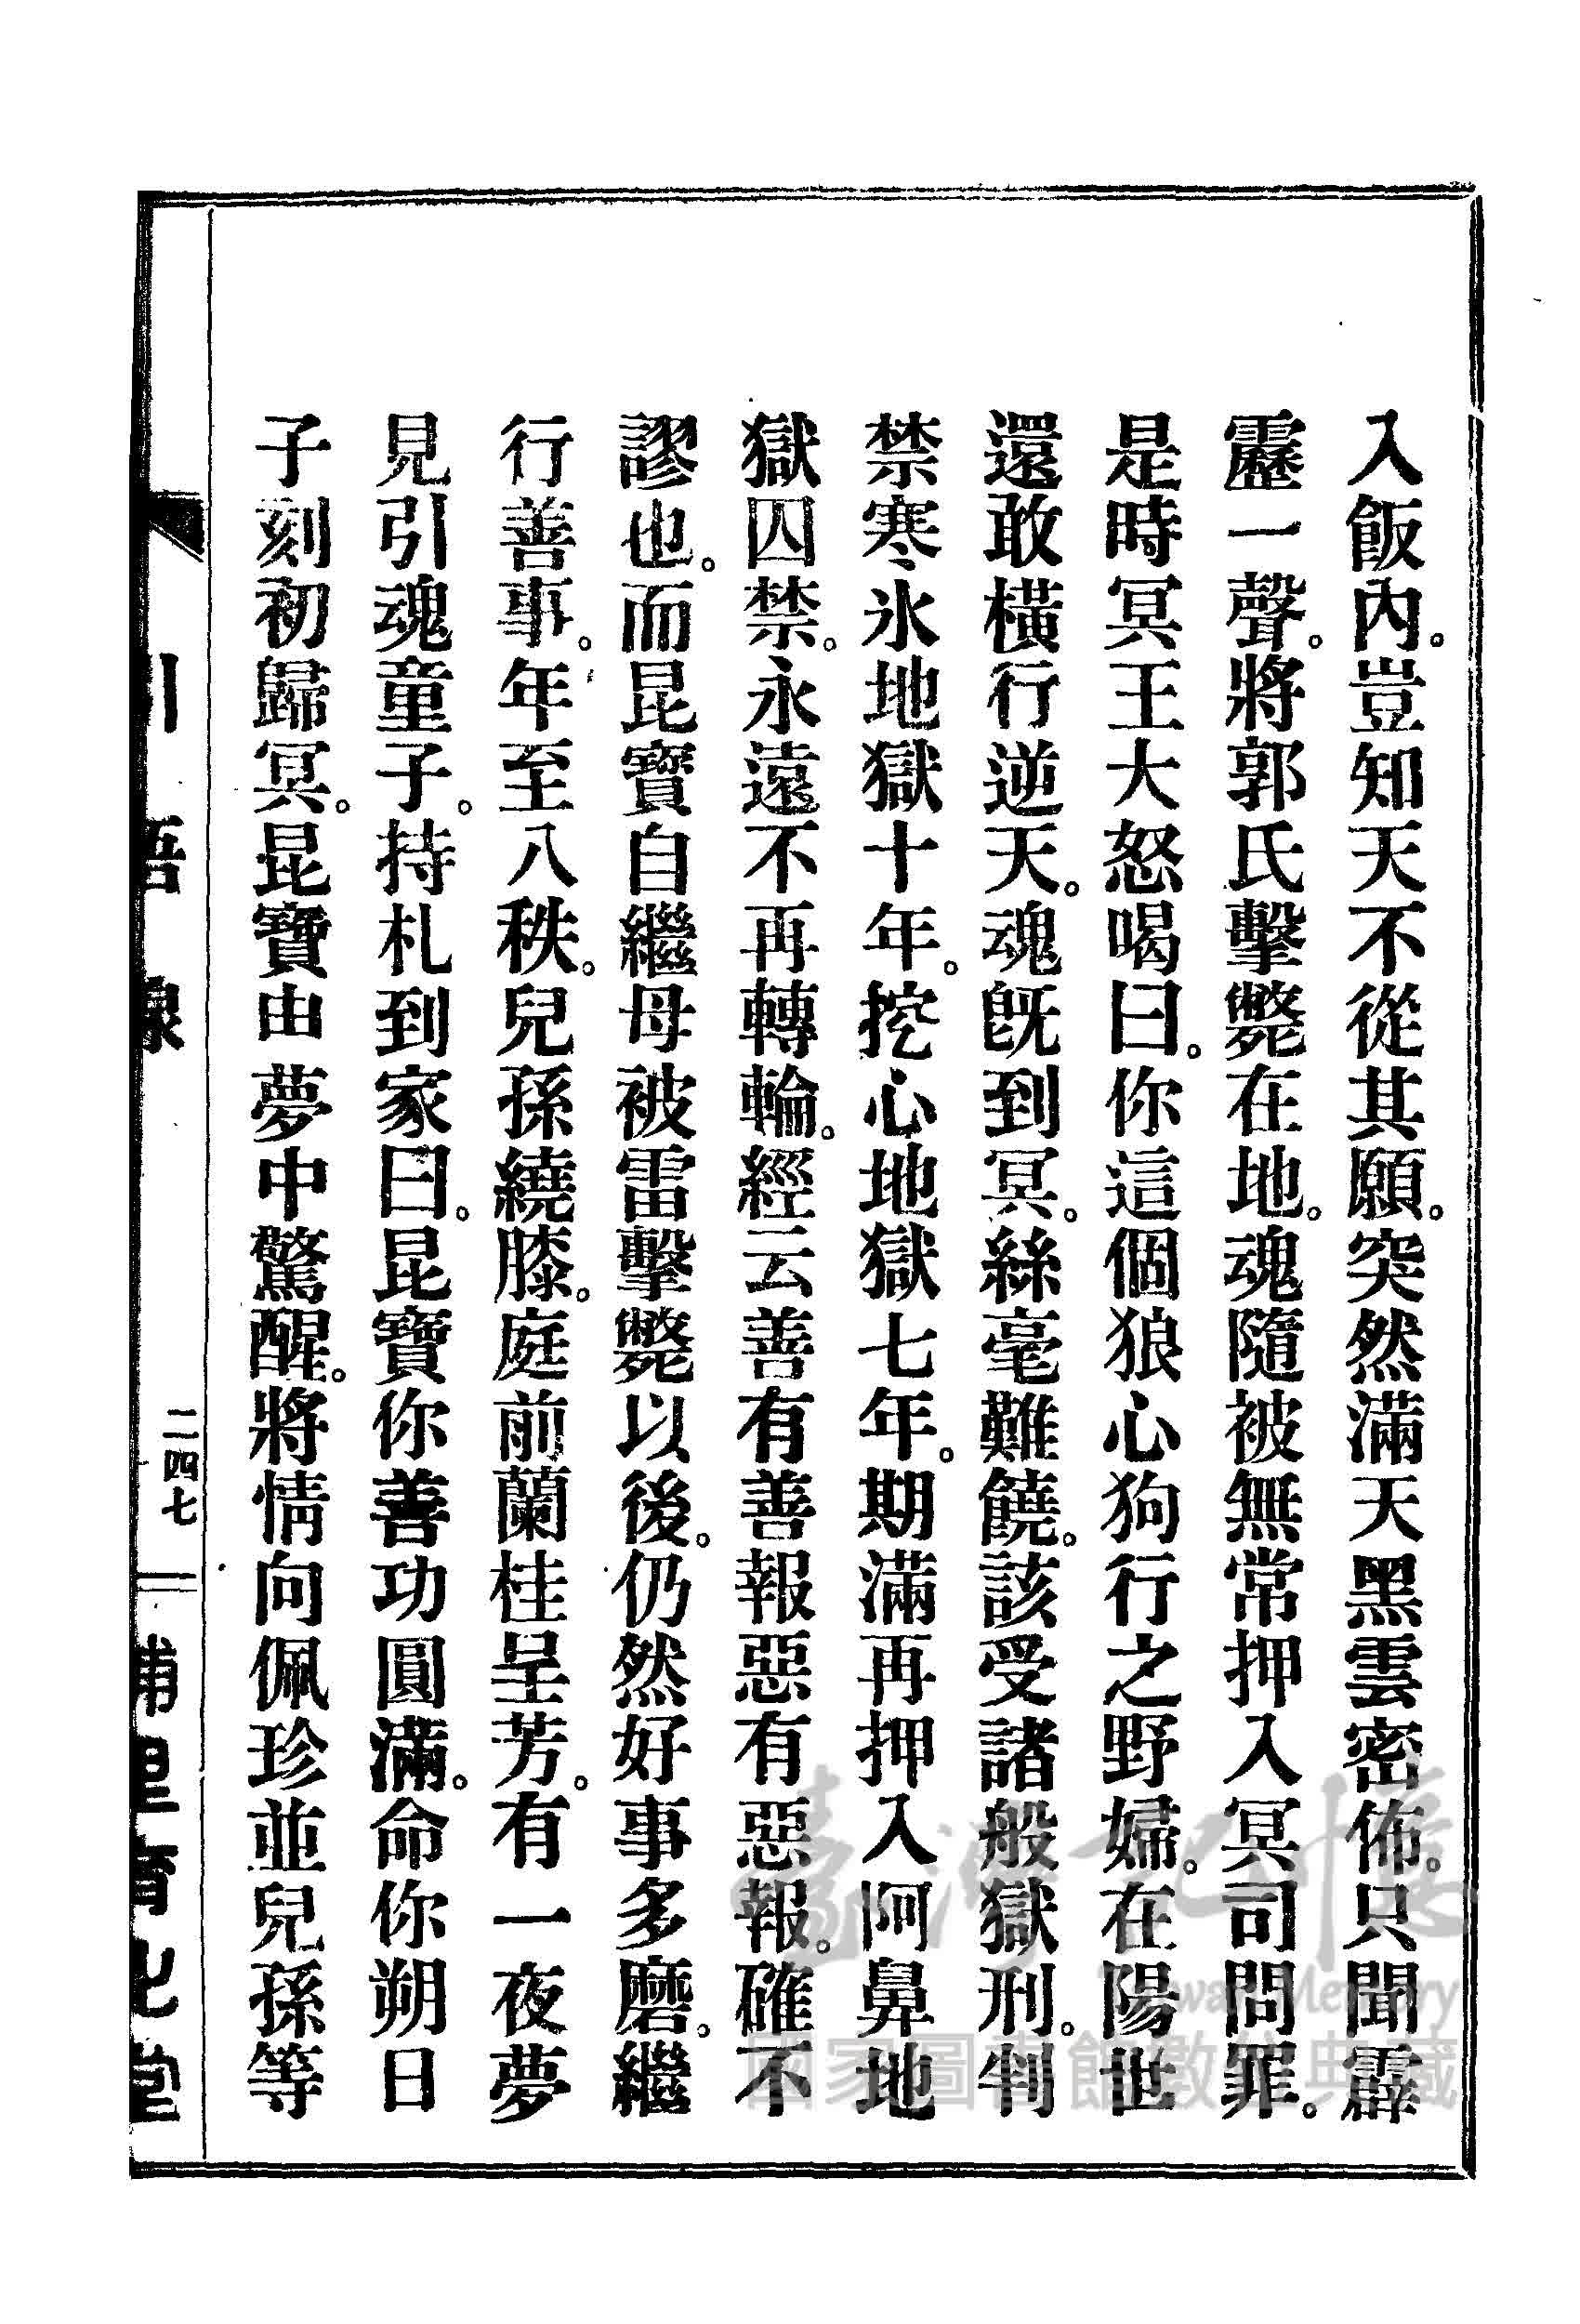 入飯內。豈知天不從其願。突然滿天黑雲密佈。只聞霹
靂一聲。將郭氏擊斃在地。魂隨被無常押入冥司問罪。
是時冥王大怒喝曰。你這個狼心狗行之野婦。在陽世
還敢橫行逆天。魂既到冥。絲毫難饒。該受諸般獄刑。判
禁寒氷地獄十年。挖心地獄七年。期滿再押入阿鼻地
獄囚禁。永遠不再轉輪。經云善有善報惡有惡報。確不
謬也。而昆寶自繼母被雷擊斃以後。仍然好事多磨。繼
行善事。年至八秩。兒孫繞膝。庭前蘭桂呈芳。有一夜夢
見引魂童子。持札到家曰。昆寶你善功圓滿。命你朔日
子刻初歸冥。昆寶由夢中驚醒。將情向佩珍並兒孫等
引悟線
二四七
埔里育化堂
臺灣記憶
Taiwan Memory
國家圖書館數位典藏